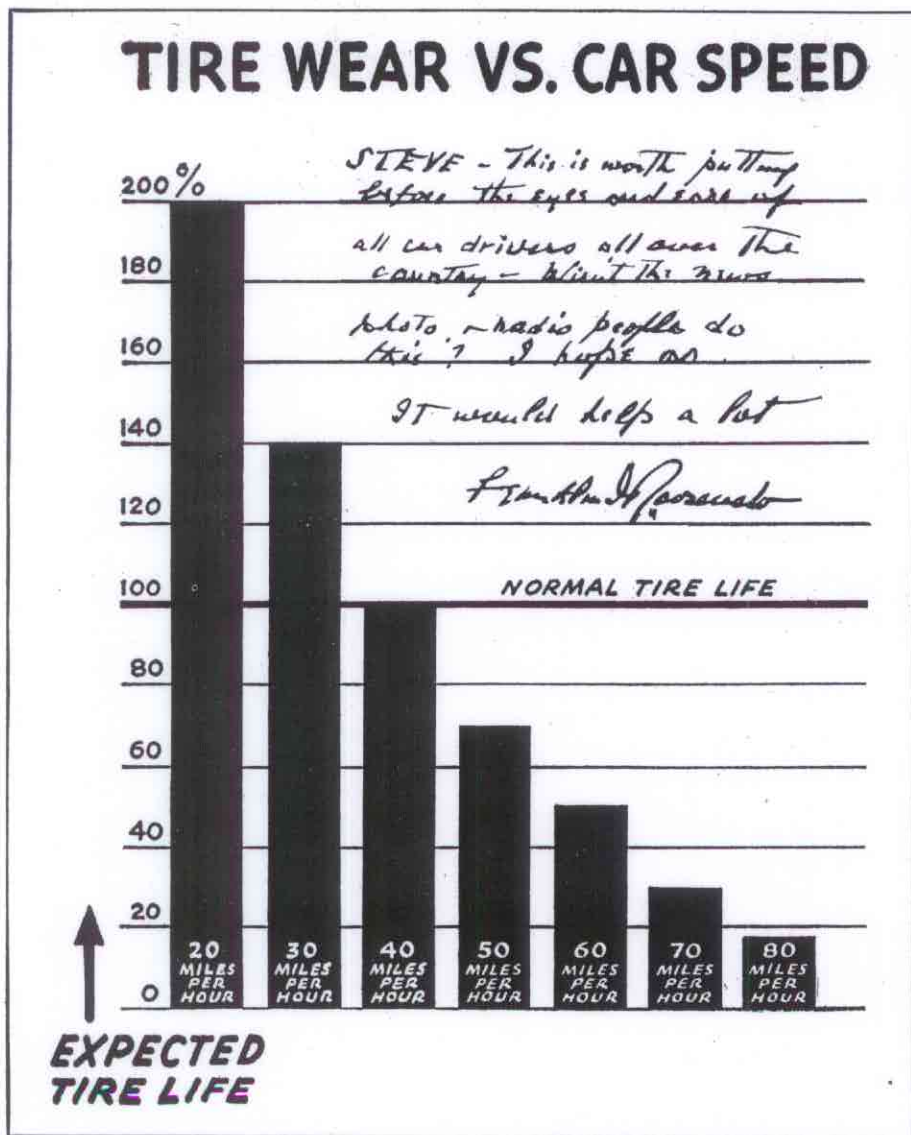 TIRE WEAR VS. CAR SPEED
STEVE - This is worth putting
before the eyes and ears of
all car drivers all over the
country - Won't the news
photo - radio people do
this? I hope so
It would help a lot
Franklin D Roosevelt
200%
180
160
140
120
100
NORMAL TIRE LIFE
80
60
40
20
0
20 MILES PER HOUR
30 MILES PER HOUR
40 MILES PER HOUR
50 MILES PER HOUR
60 MILES PER HOUR
70 MILES PER HOUR
80 MILES PER HOUR
EXPECTED
TIRE LIFE